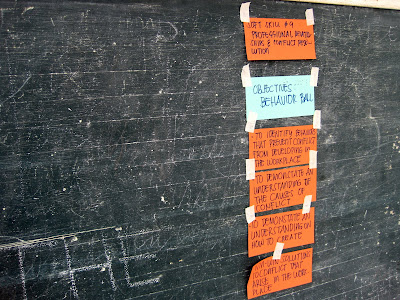 SOFT SKILL #9
PROFESSIONAL RELATION
SHIPS & CONFLICT RESO-
LUTION
OBJECTIVES:
BEHAVIOR BALL
- TO IDENTIFY BEHAVIORS
THAT PREVENT CONFLICT
FROM DEVELOPING IN
THE WORKPLACE
- TO DEMONSTRATE AN
UNDERSTANDING OF
THE CAUSES OF
CONFLICT
- TO DEMONSTRATE AN
UNDERSTANDING ON
HOW TO CREATE
SOLUTIONS
TO CONFLICT THAT
ARISE IN THE WORK
PLACE